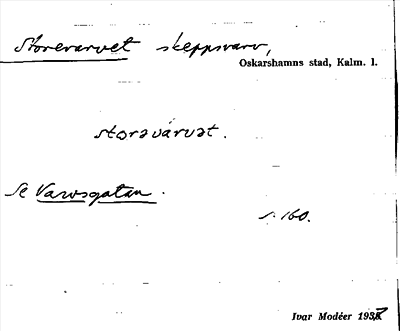 Storevarvet skeppsvarv,
Oskarshamns stad, Kalm. l.
storəvárvət.
Se Varvsgatan.
s. 160.
Ivar Modéer 1937